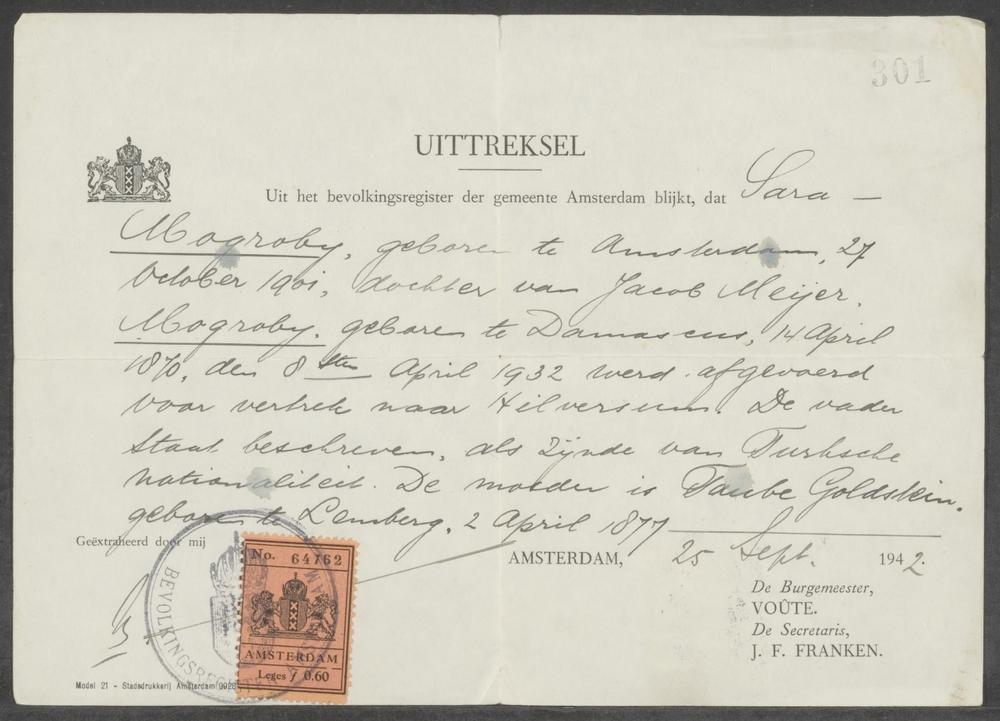 301
UITTREKSEL
Uit het bevolkingsregister der gemeente Amsterdam blijkt, dat Sara —
Mogroby, geboren te Amsterdam, 27
October 1901, dochter van Jacob Meijer.
Mogroby. geboren te Damascus, 14 April
1870, den 8sten April 1932 werd afgevoerd
voor vertrek naar Hilversum. De vader
staat beschreven, als zijnde van Turksche
nationaliteit. De moeder is Taube Goldstein.
geboren te Lemberg, 2 April 1877
Geëxtraheerd door mij
AMSTERDAM, 25 Sept. 1942.
De Burgemeester,
VOÛTE.
De Secretaris,
J. F. FRANKEN.
No. 64762
AMSTERDAM
Leges ƒ 0.60
BEVOLKINGSREGISTER
Model 21 - Stadsdrukkerij Amsterdam 9928